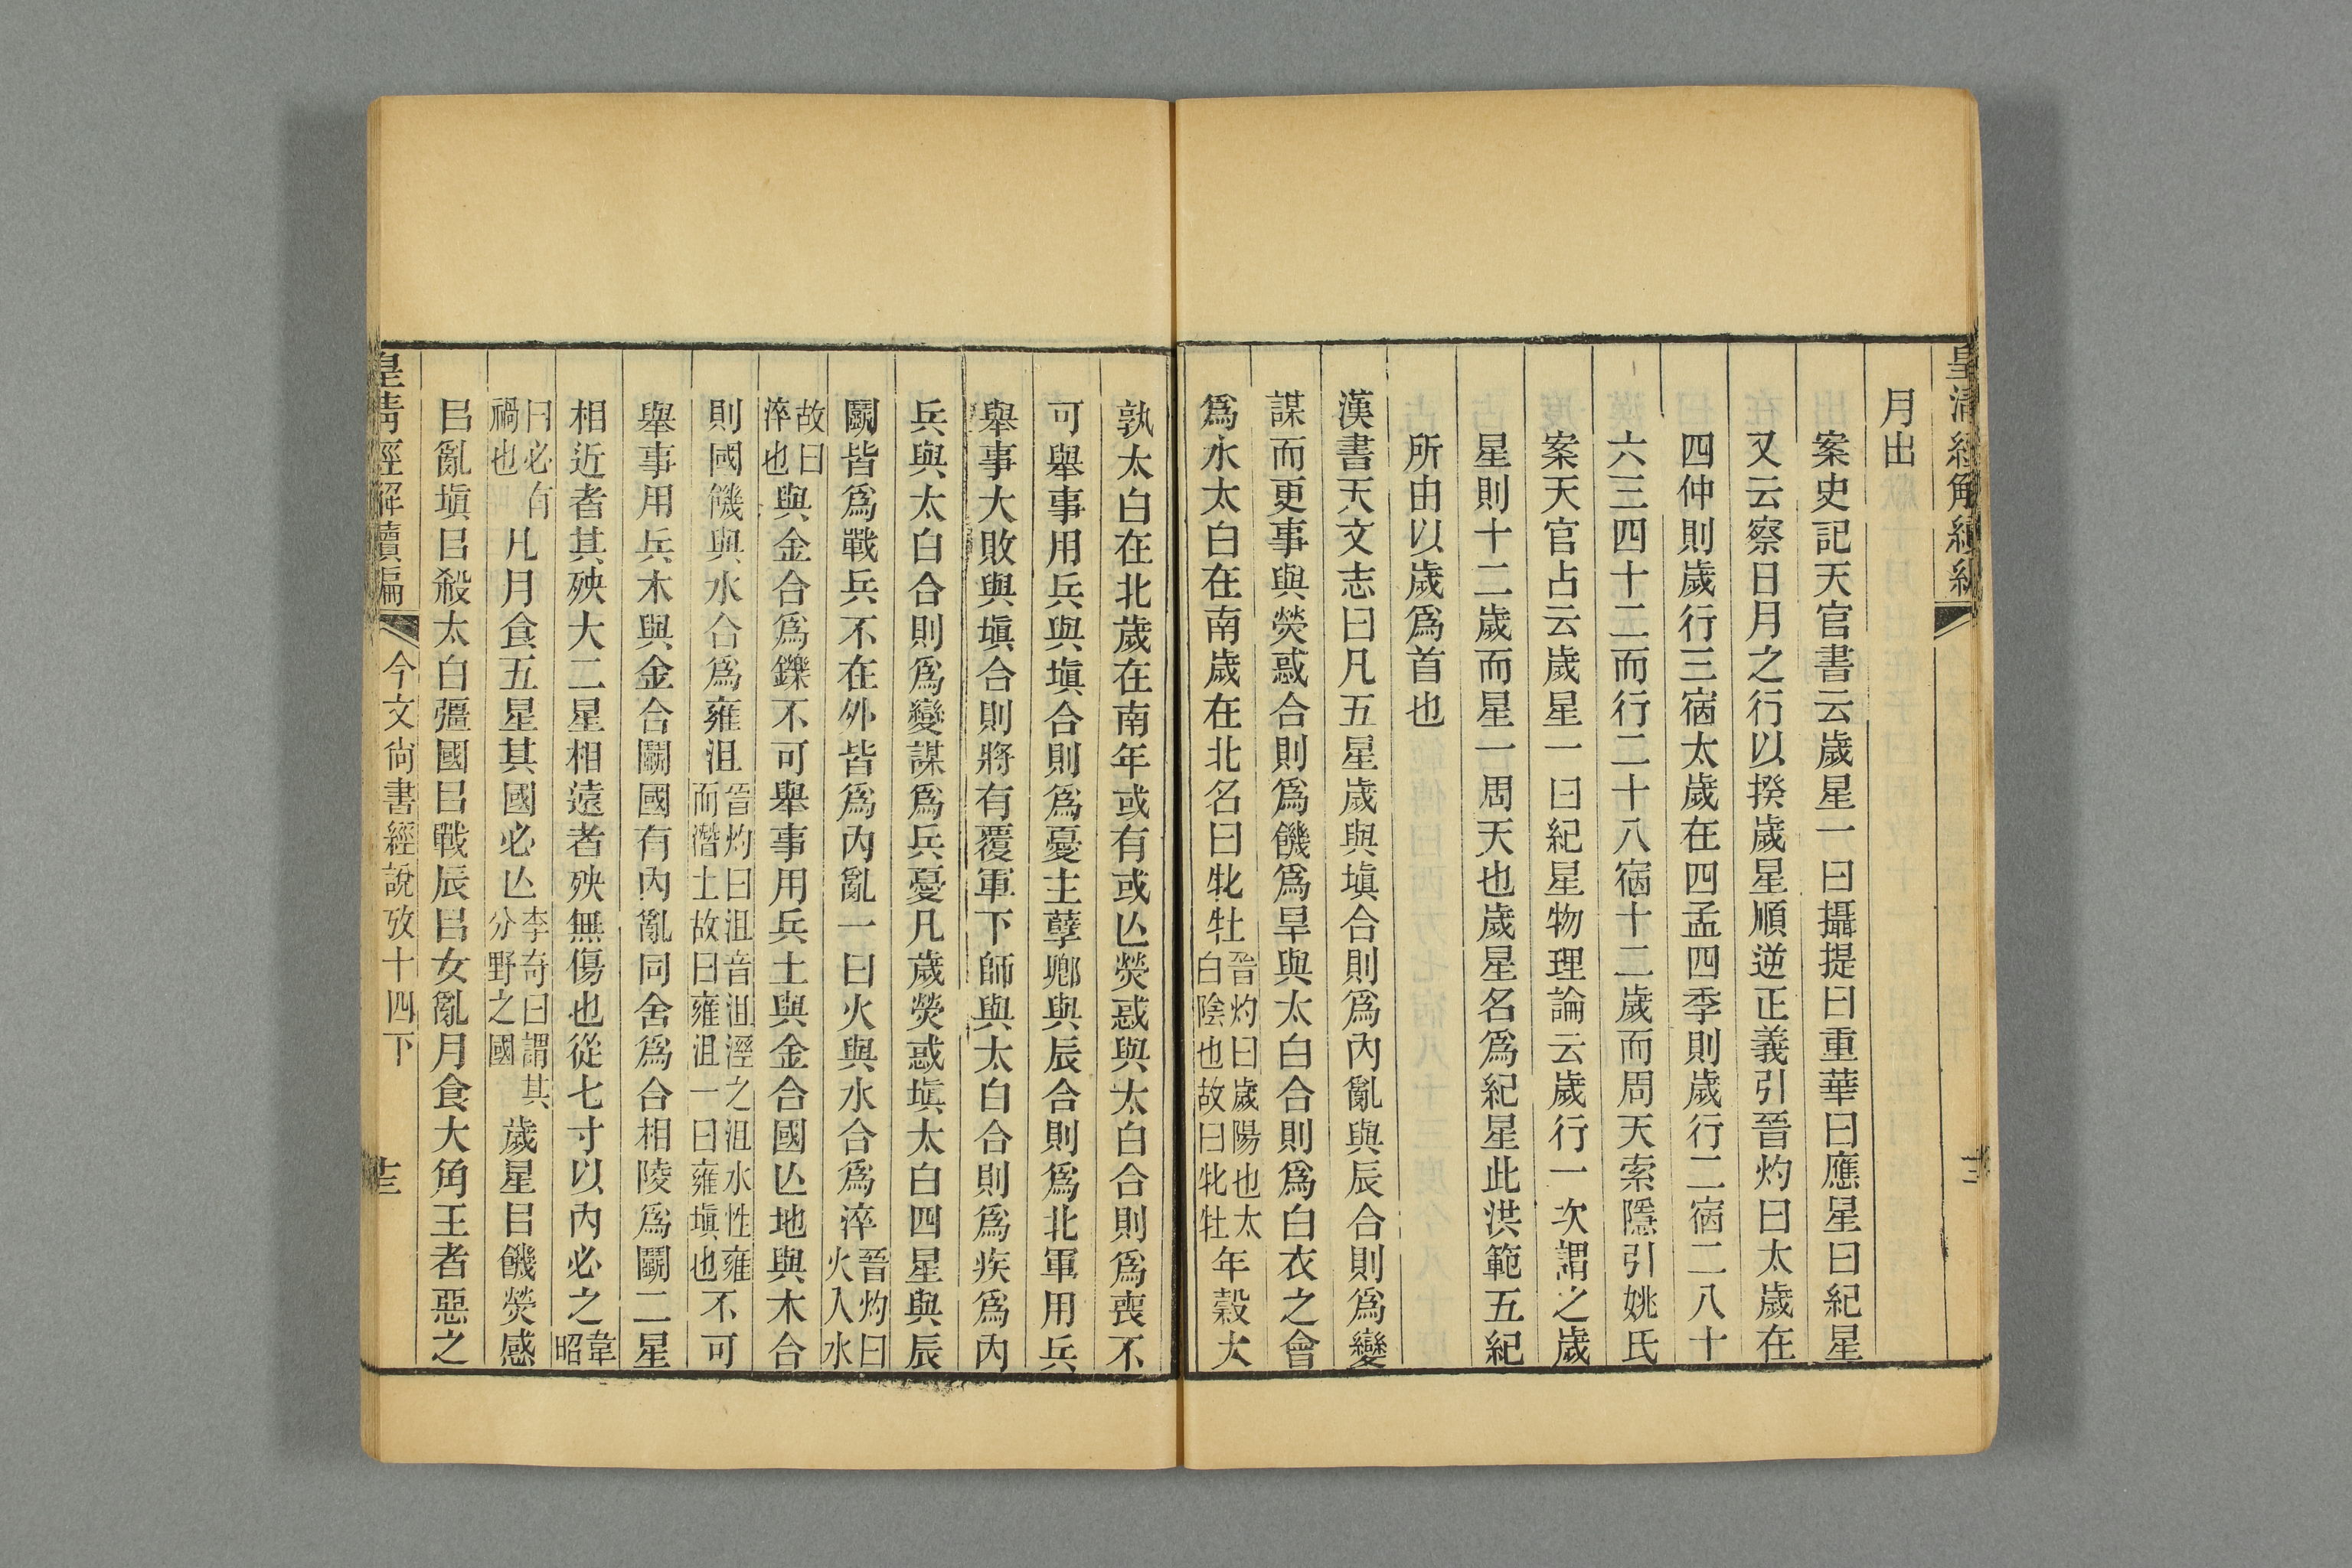 皇清經解續編
月出
案史記天官書云歲星一曰攝提曰重華曰應星曰紀星
又云察日月之行以揆歲星順逆正義引晉灼曰太歲在
四仲則歲行三宿太歲在四孟四季則歲行二宿二八十
六三四十二而行二十八宿十二歲而周天索隱引姚氏
案天官占云歲星一曰紀星物理論云歲行一次謂之歲
星則十二歲而星一周天也歲星名爲紀星此洪範五紀
所由以歲爲首也
漢書天文志曰凡五星歲與塡合則爲內亂與辰合則爲變
謀而更事與熒惑合則爲饑爲旱與太白合則爲白衣之會
爲水太白在南歲在北名曰牝牡晉灼曰歲陽也太白陰也故曰牝牡年穀大
孰太白在北歲在南年或有或亾熒惑與太白合則爲喪不
可舉事用兵與塡合則爲憂主孽卿與辰合則爲北軍用兵
舉事大敗與塡合則將有覆軍下師與太白合則爲疾爲內
兵與太白合則爲變謀爲兵憂凡歲熒惑塡太白四星與辰
鬭皆爲戰兵不在外皆爲內亂一曰火與水合爲淬晉灼曰火入水
故曰淬也與金合爲鑠不可舉事用兵土與金合國亾地與木合
則國饑與水合爲雍沮晉灼曰沮音沮溼之沮水性雍而潛土故曰雍沮一曰雍塡也不可
舉事用兵木與金合鬭國有內亂同舍爲合相陵爲鬭二星
相近者其殃大二星相遠者殃無傷也從七寸以內必之韋昭
曰必有禍也凡月食五星其國必亾李奇曰謂其分野之國歲星㠯饑熒惑
㠯亂塡㠯殺太白彊國㠯戰辰㠯女亂月食大角王者惡之
皇清經解續編
今文尙書經說攷十四下